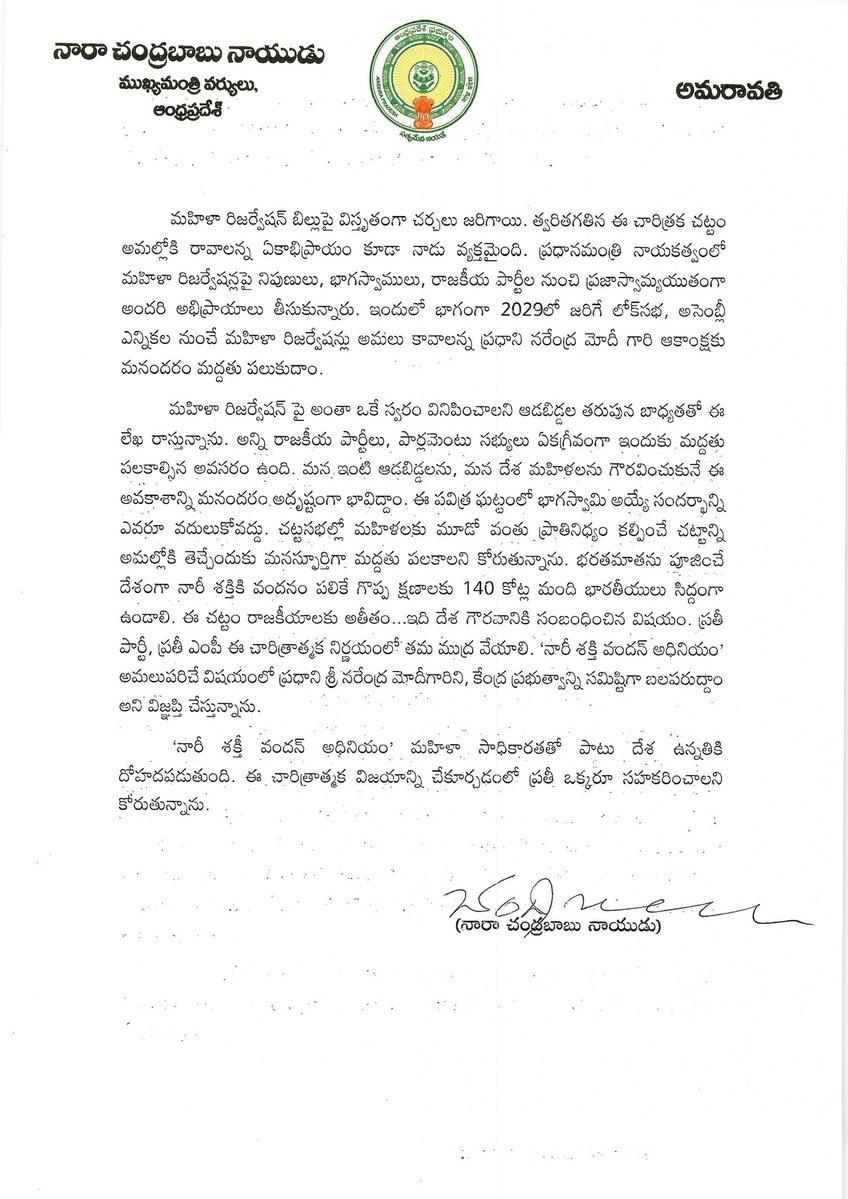 నారా చంద్రబాబు నాయుడు
ముఖ్యమంత్రి వర్యులు,
ఆంధ్రప్రదేశ్
ఆంధ్రప్రదేశ్ ప్రభుత్వం
ANDHRA PRADESH
సత్యమేవ జయతే
అమరావతి
మహిళా రిజర్వేషన్ బిల్లుపై విస్తృతంగా చర్చలు జరిగాయి. త్వరితగతిన ఈ చారిత్రక చట్టం
అమల్లోకి రావాలన్న ఏకాభిప్రాయం కూడా నాడు వ్యక్తమైంది. ప్రధానమంత్రి నాయకత్వంలో
మహిళా రిజర్వేషన్లపై నిపుణులు, భాగస్వాములు, రాజకీయ పార్టీల నుంచి ప్రజాస్వామ్యయుతంగా
అందరి అభిప్రాయాలు తీసుకున్నారు. ఇందులో భాగంగా 2029లో జరిగే లోక్‌సభ, అసెంబ్లీ
ఎన్నికల నుంచే మహిళా రిజర్వేషన్లు అమలు కావాలన్న ప్రధాని నరేంద్ర మోదీ గారి ఆకాంక్షకు
మనందరం మద్దతు పలుకుదాం.
మహిళా రిజర్వేషన్ పై అంతా ఒకే స్వరం వినిపించాలని ఆడబిడ్డల తరుపున బాధ్యతతో ఈ
లేఖ రాస్తున్నాను. అన్ని రాజకీయ పార్టీలు, పార్లమెంటు సభ్యులు ఏకగ్రీవంగా ఇందుకు మద్దతు
పలకాల్సిన అవసరం ఉంది. మన ఇంటి ఆడబిడ్డలను, మన దేశ మహిళలను గౌరవించుకునే ఈ
అవకాశాన్ని మనందరం అదృష్టంగా భావిద్దాం. ఈ పవిత్ర ఘట్టంలో భాగస్వామి అయ్యే సందర్భాన్ని
ఎవరూ వదులుకోవద్దు. చట్టసభల్లో మహిళలకు మూడో వంతు ప్రాతినిధ్యం కల్పించే చట్టాన్ని
అమల్లోకి తెచ్చేందుకు మనస్ఫూర్తిగా మద్దతు పలకాలని కోరుతున్నాను. భరతమాతను పూజించే
దేశంగా నారీ శక్తికి వందనం పలికే గొప్ప క్షణాలకు 140 కోట్ల మంది భారతీయులు సిద్దంగా
ఉండాలి. ఈ చట్టం రాజకీయాలకు అతీతం...ఇది దేశ గౌరవానికి సంబంధించిన విషయం. ప్రతీ
పార్టీ, ప్రతీ ఎంపీ ఈ చారిత్రాత్మక నిర్ణయంలో తమ ముద్ర వేయాలి. 'నారీ శక్తి వందన్ అధినియం'
అమలుపరిచే విషయంలో ప్రధాని శ్రీ నరేంద్ర మోదీగారిని, కేంద్ర ప్రభుత్వాన్ని సమిష్టిగా బలపరుద్దాం
అని విజ్ఞప్తి చేస్తున్నాను.
'నారీ శక్తీ వందన్ అధినియం' మహిళా సాధికారతతో పాటు దేశ ఉన్నతికి
దోహదపడుతుంది. ఈ చారిత్రాత్మక విజయాన్ని చేకూర్చడంలో ప్రతీ ఒక్కరూ సహకరించాలని
కోరుతున్నాను.
(నారా చంద్రబాబు నాయుడు)